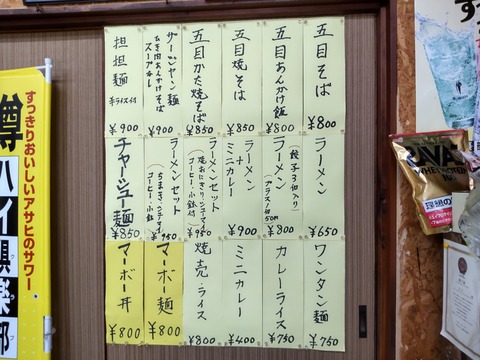 五目そば
¥800
五目あんかけ飯
¥800
五目焼そば
¥850
五目かた焼そば
¥850
サーマーヤン麺
スープなし
¥900
担担麺
半ライス付
¥900
ラーメン
¥650
ラーメン
(餃子3個入り)
¥800
ラーメン
+
ミニカレー
¥900
ラーメンセット
¥950
ラーメンセット
¥950
チャーシュー麺
¥850
ワンタン麺
¥750
カレーライス
¥750
ミニカレー
¥400
焼売ライス
¥800
マーボー麺
¥800
マーボー丼
¥800
すっきりおいしいアサヒのサワー
樽ハイ倶楽部